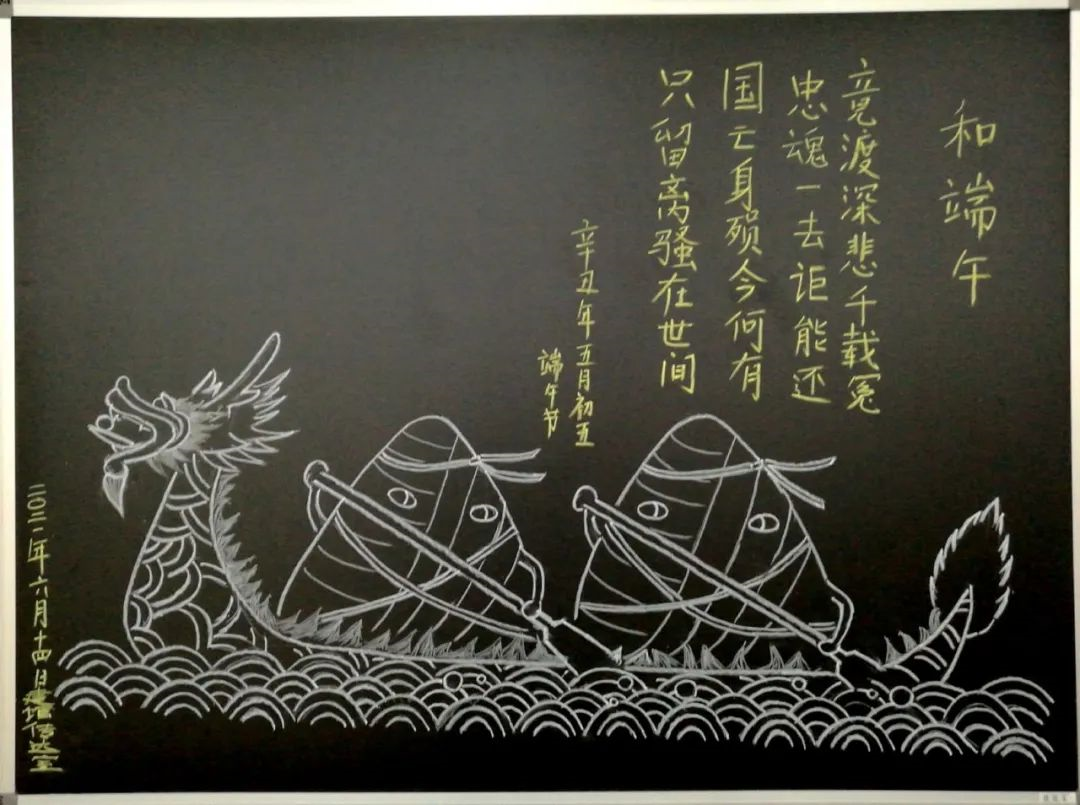 和端午
竞渡深悲千载冤
忠魂一去讵能还
国亡身殒今何有
只留离骚在世间
辛丑年五月初五
端午节
二〇二一年六月十四日